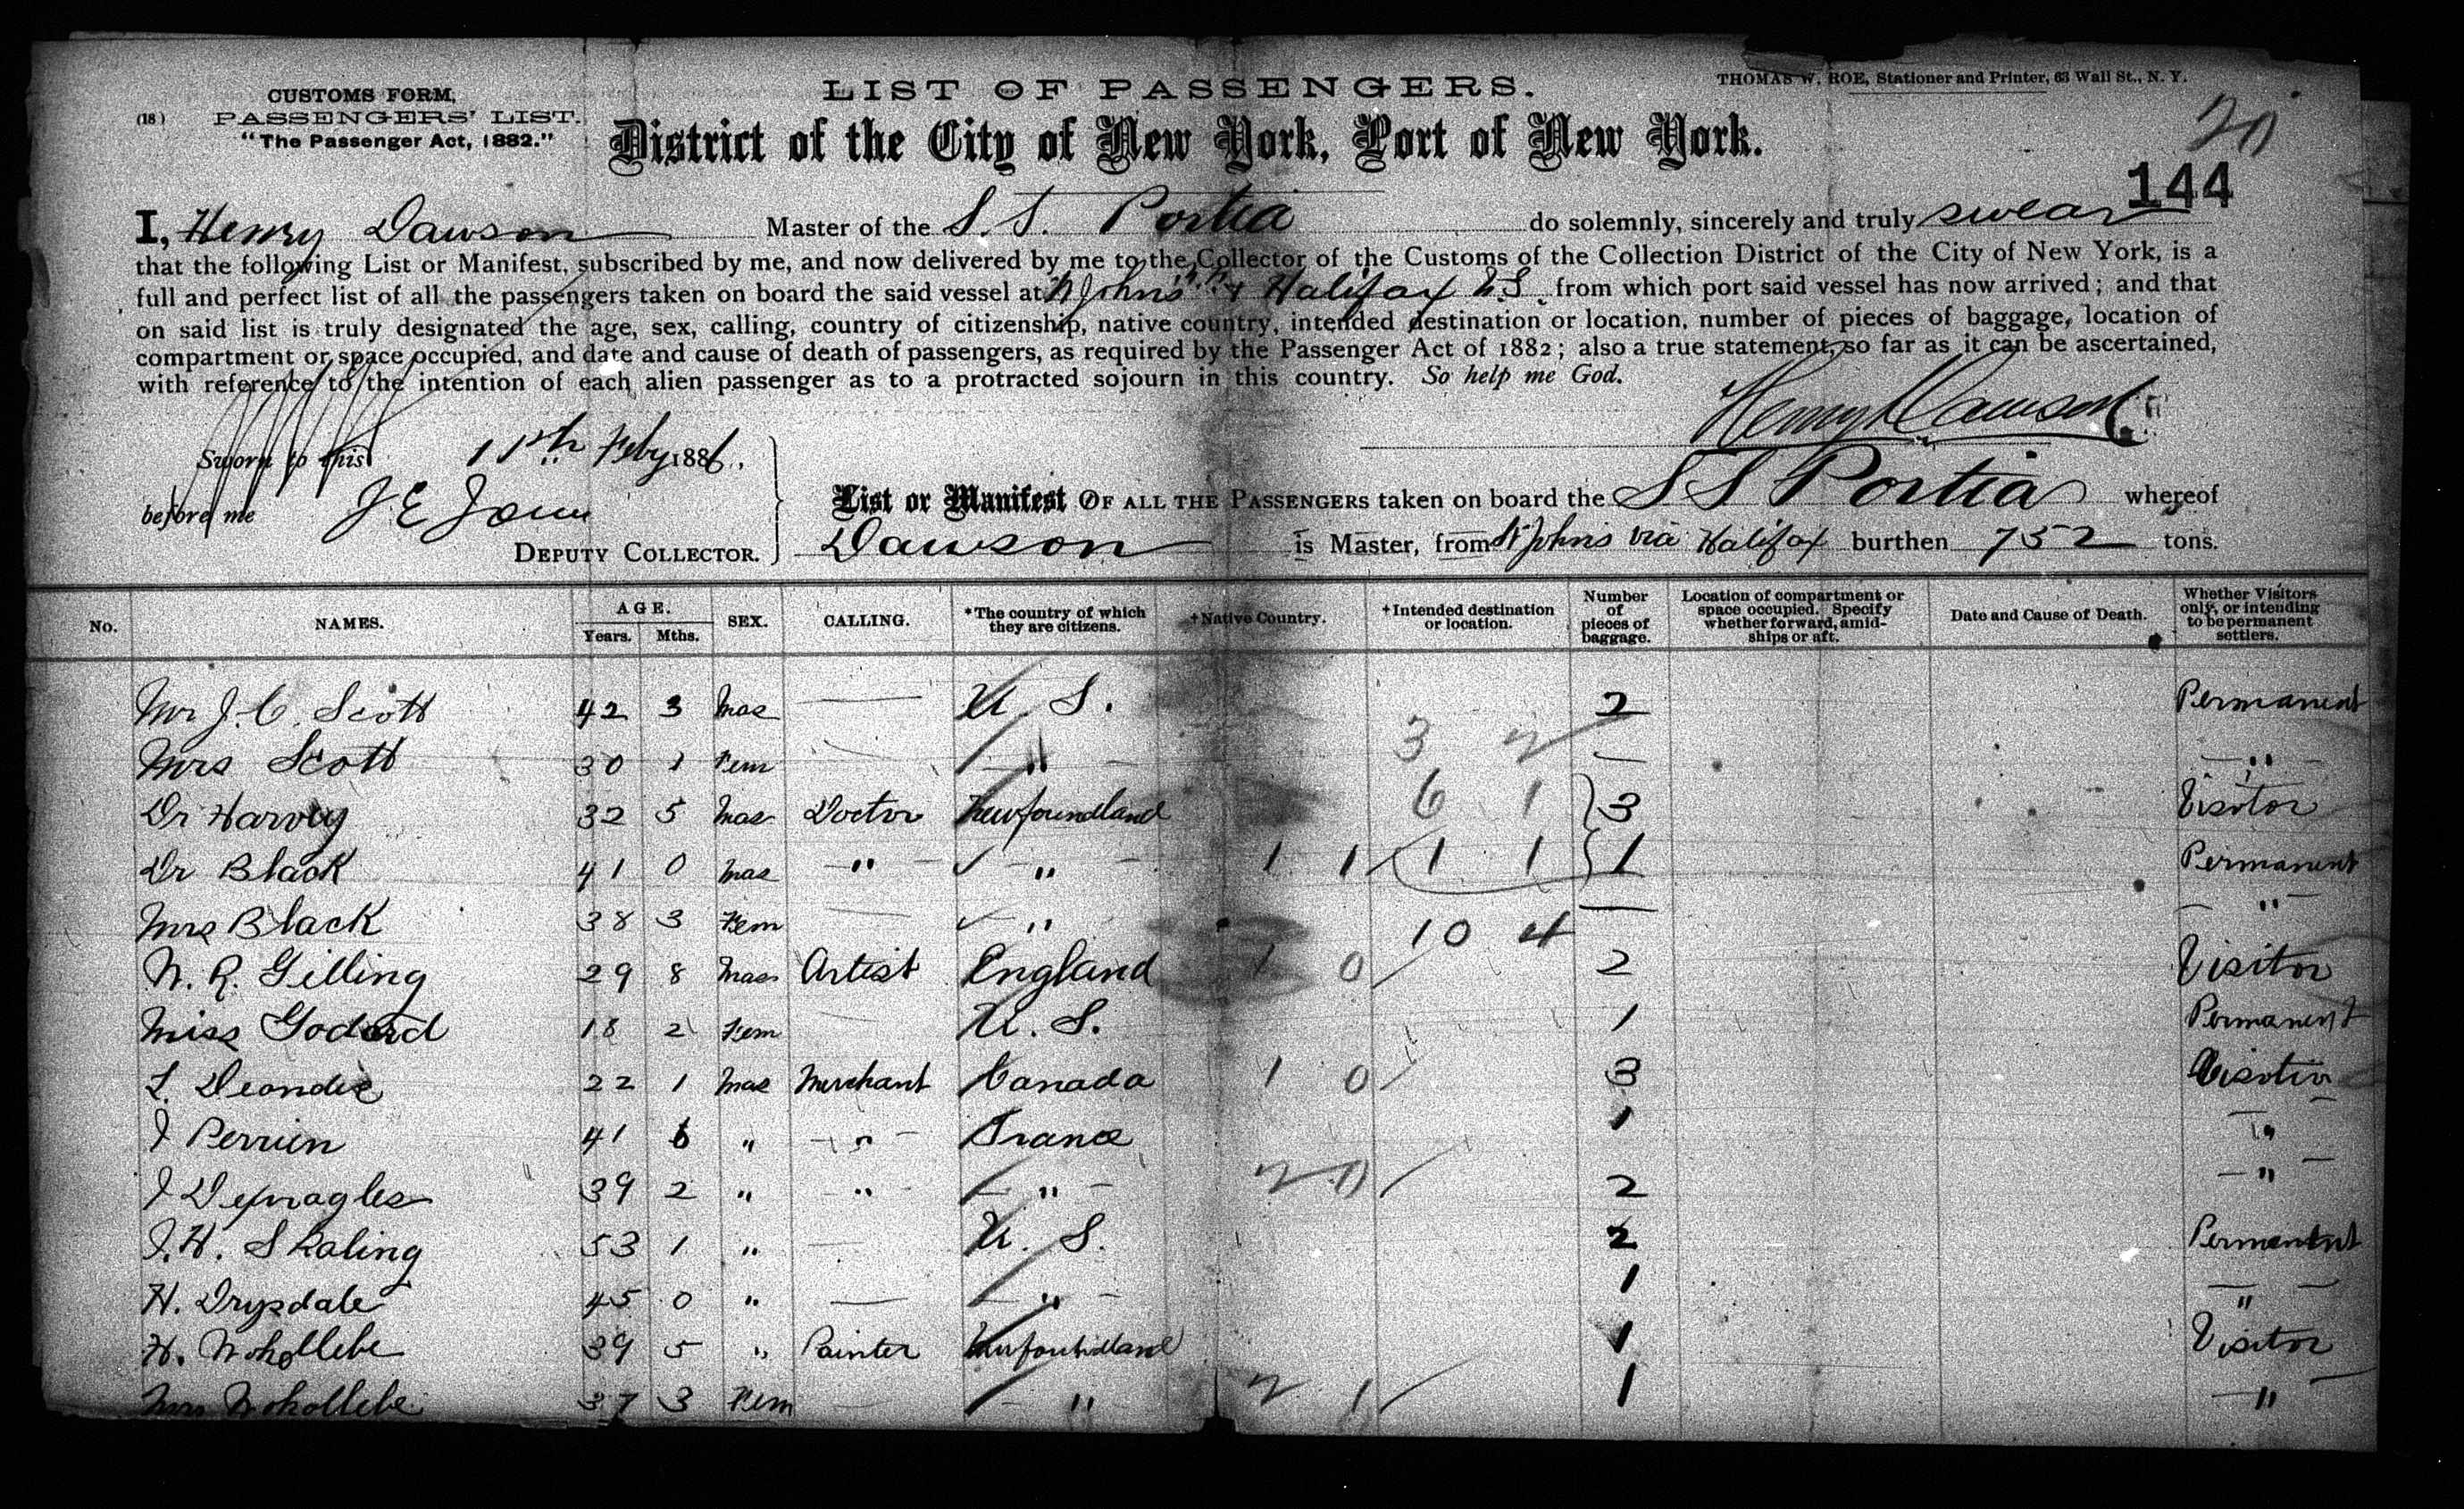 CUSTOMS FORM,
(18) PASSENGERS' LIST.
"The Passenger Act, 1882."
LIST OF PASSENGERS.
THOMAS W. ROE, Stationer and Printer, 63 Wall St., N. Y.
20
District of the City of New York, Port of New York.
144
I, Henry Dawson Master of the S. S. Portia do solemnly, sincerely and truly swear
that the following List or Manifest, subscribed by me, and now delivered by me to the Collector of the Customs of the Collection District of the City of New York, is a
full and perfect list of all the passengers taken on board the said vessel at St Johns N.F. & Halifax N.S. from which port said vessel has now arrived; and that
on said list is truly designated the age, sex, calling, country of citizenship, native country, intended destination or location, number of pieces of baggage, location of
compartment or space occupied, and date and cause of death of passengers, as required by the Passenger Act of 1882; also a true statement, so far as it can be ascertained,
with reference to the intention of each alien passenger as to a protracted sojourn in this country. So help me God.
Henry Dawson
Sworn to this Feby 1886.
before me J E
DEPUTY COLLECTOR.
List or Manifest OF ALL THE PASSENGERS taken on board the S S Portia whereof
Dawson is Master, from St Johns via Halifax burthen 752 tons.
No. NAMES. AGE. Years. Mths. SEX. CALLING. *The country of which they are citizens. +Native Country. +Intended destination or location. Number of pieces of baggage. Location of compartment or space occupied. Specify whether forward, amidships or aft. Date and Cause of Death. Whether Visitors only, or intending to be permanent settlers.
Mr J. C. Scott 42 3 Mas — U. S. 2 Permanent
Mrs Scott 30 1 Fem — " 3 2 — "
Dr Harvey 32 5 Mas Doctor Newfoundland 6 1 3 Visitor
Dr Black 41 0 Mas " " 1 1 1 1 1 Permanent
Mrs Black 38 3 Fem — " 10 4 — "
W. R. Gilling 29 8 Mas Artist England 1 0 2 Visitor
Miss Godard 18 2 Fem U. S. 1 Permanent
L. 22 1 Mas Merchant Canada 1 0 3 Visitor
J Perrien 41 6 " " France 1 "
J 39 2 " " " 2 0 2 "
J. H. Skaling 53 1 " — U. S. 2 Permanent
H. Drysdale 45 0 " — " 1 "
H. Wohollebe 39 5 " Painter Newfoundland 1 Visitor
Mrs Wohollebe 37 3 Fem — " 2 1 1 "